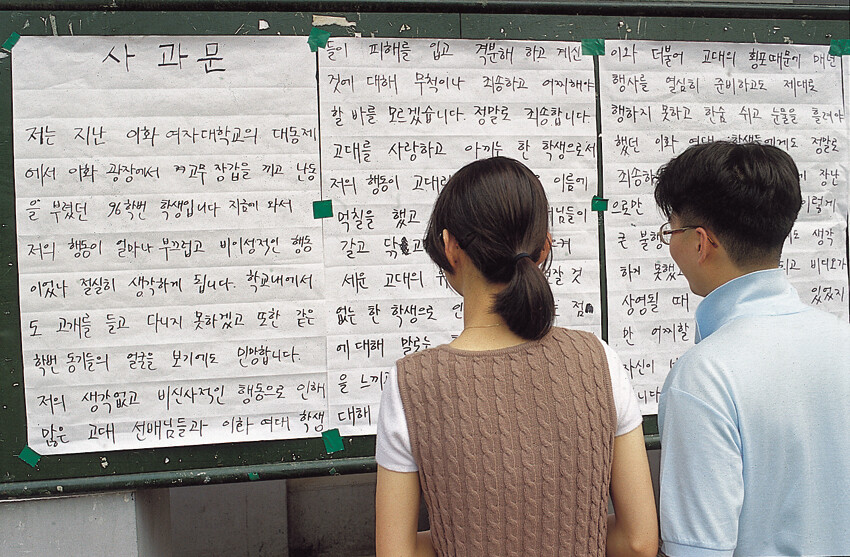 사과문
저는 지난 이화 여자대학교의 대동제
에서 이화 광장에서 고무장갑을 끼고 난동
을 부렸던 96학번 학생입니다 지금에 와서
저의 행동이 얼마나 부끄럽고 비이성적인 행동
이었나 절실히 생각하게 됩니다. 학교내에서
도 고개를 들고 다니지 못하겠고 또한 같은
학번 동기들의 얼굴을 보기에도 민망합니다.
저의 생각없고 비신사적인 행동으로 인해
많은 고대 선배님들과 이화여대 학생
들이 피해를 입고 격분해 하고 계신
것에 대해 무척이나 죄송하고 어찌해야
할 바를 모르겠습니다. 정말로 죄송합니다.
고대를 사랑하고 아끼는 한 학생으로서
저의 행동이 이름에
먹칠을 했고
갈고
세운 고대의
없는 한 학생으로 점
에 대해
을 느끼
대해
이와 더불어 고대의 횡포때문에 매년
행사를 열심히 준비하고도 제대로
행하지 못하고 한숨 쉬고 눈물을 흘려야
했던 이화 여대 학생들에게도 정말로
장난
으로만 이렇게
큰 생각
하게 못했 비디오가
상영될 때 있었지
만 어찌할
자신이